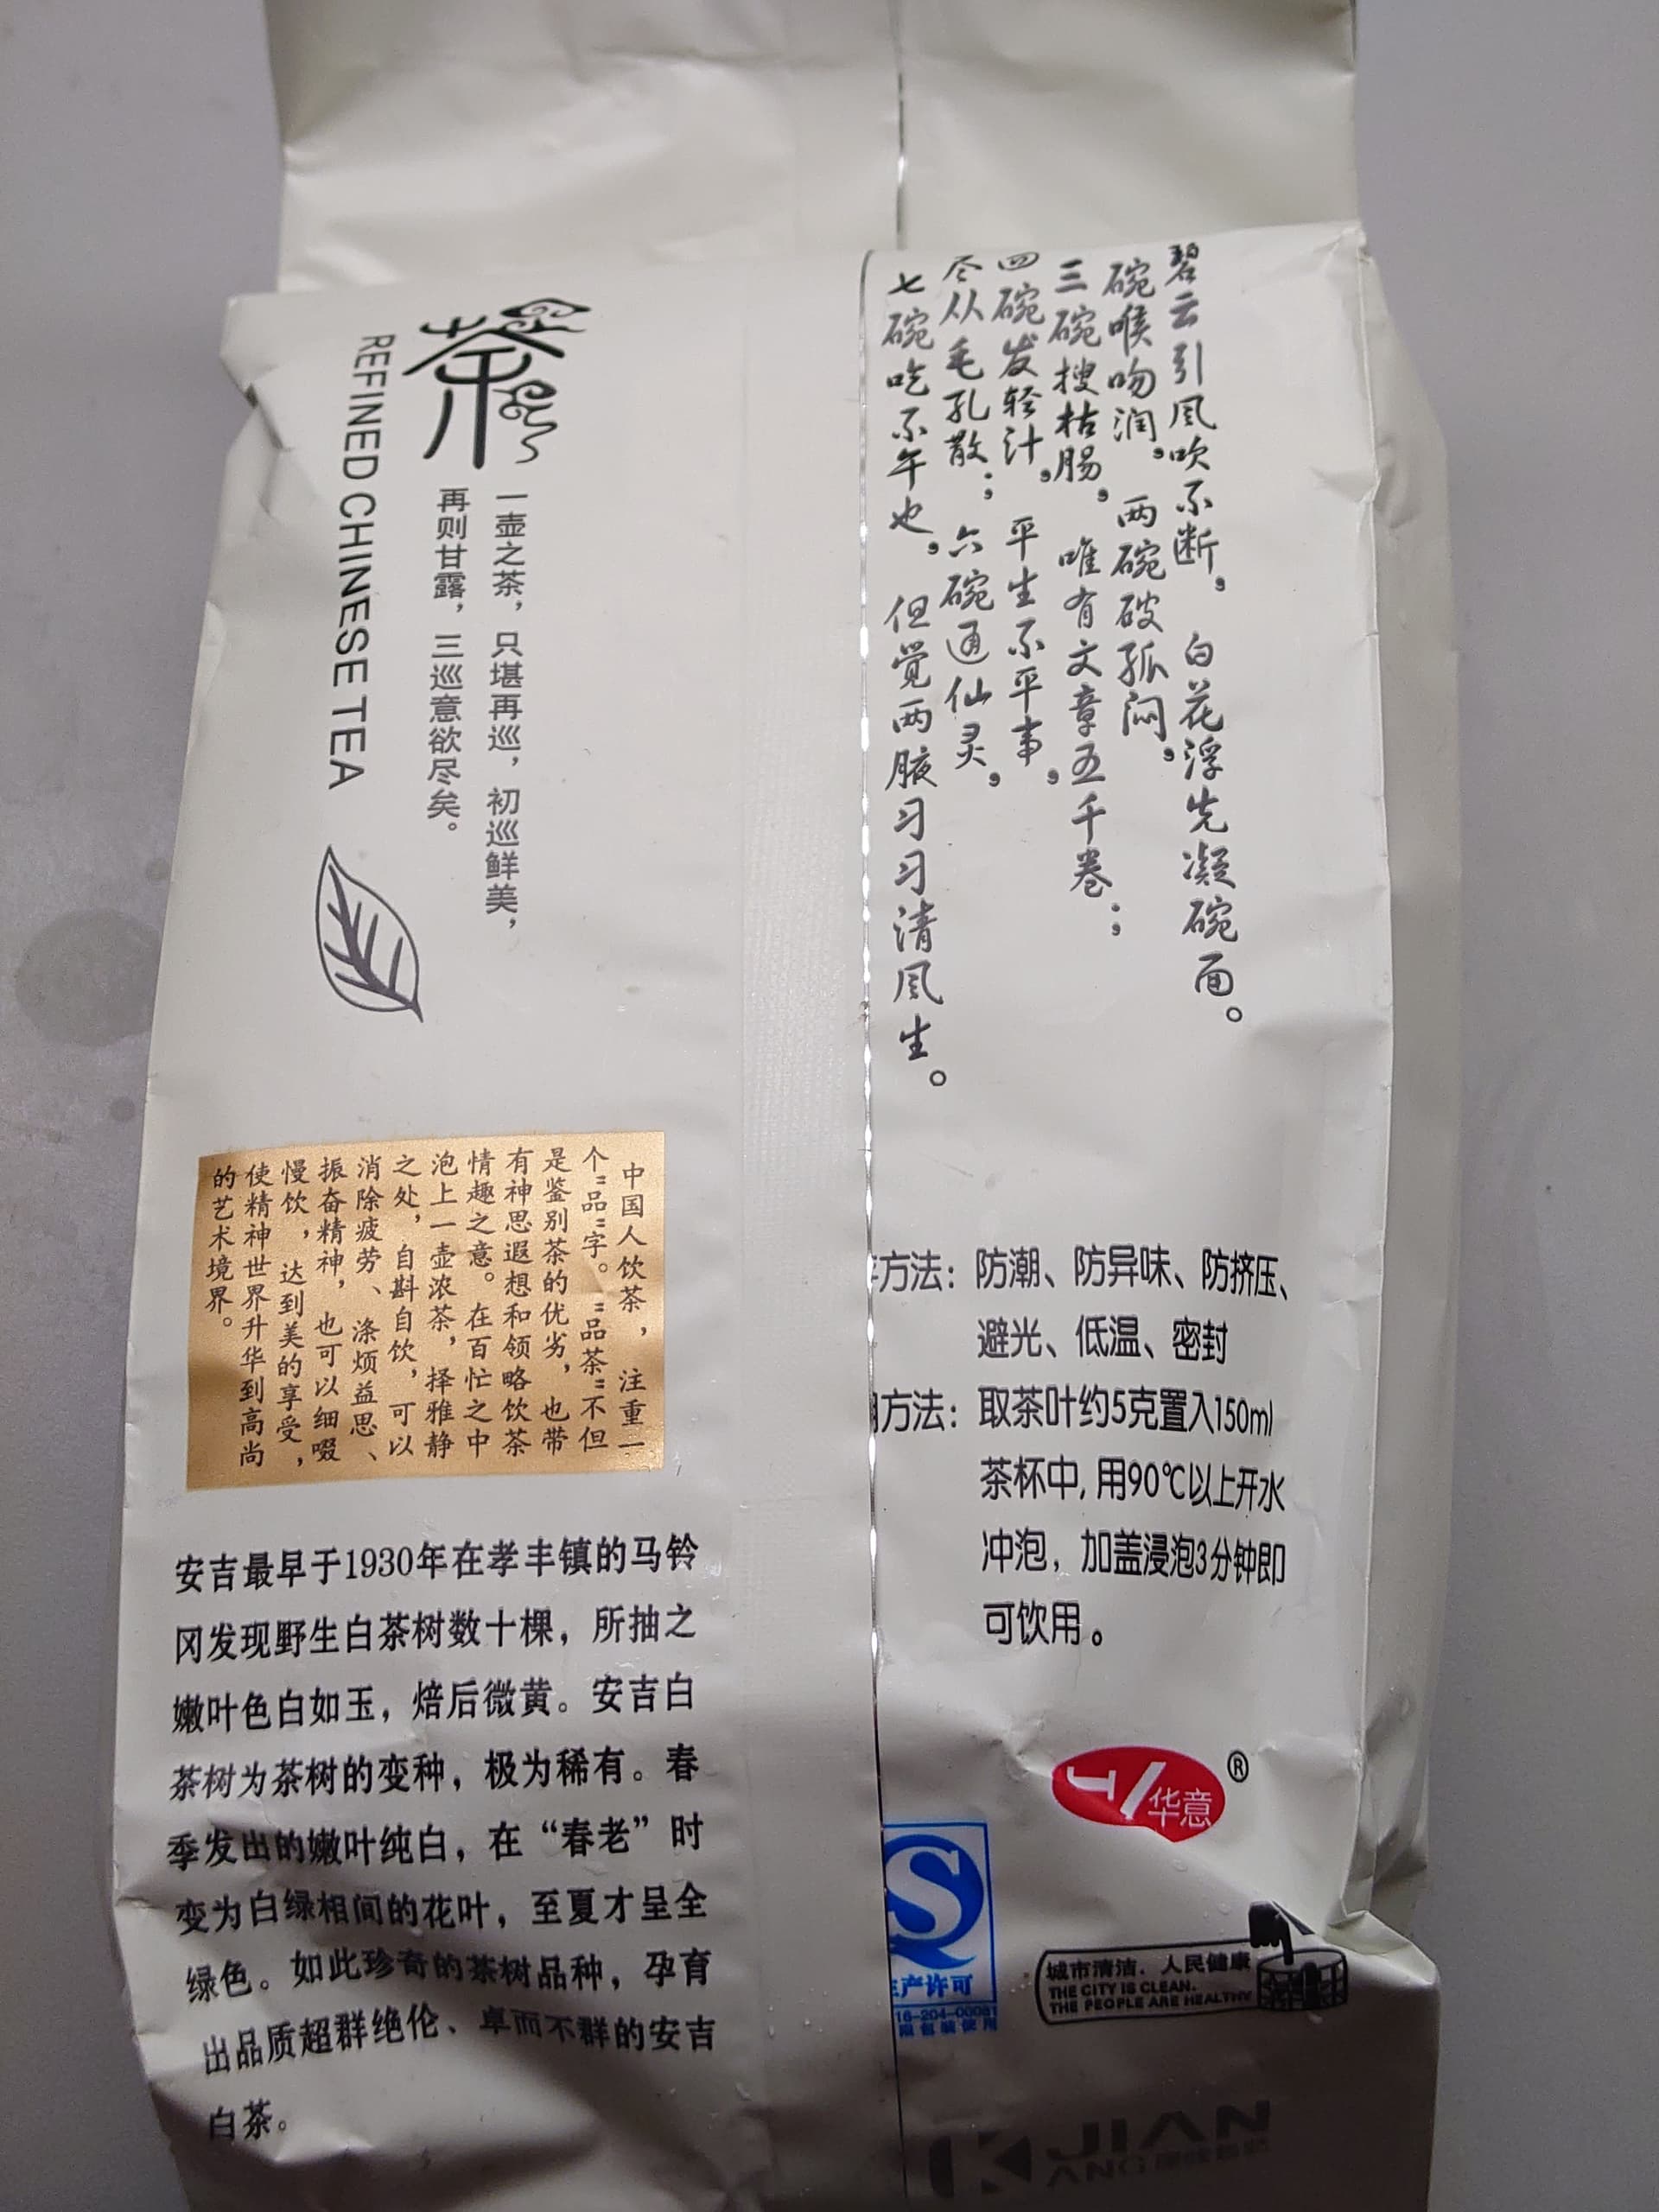 碧云引风吹不断，白花浮光凝碗面。
碗喉吻润，两碗破孤闷，
三碗搜枯肠，唯有文章五千卷；
四碗发轻汁，平生不平事，
尽从毛孔散；六碗通仙灵，
七碗吃不午也，但觉两腋习习清风生。
茶
REFINED CHINESE TEA
一壶之茶，只堪再巡，初巡鲜美，
再则甘露，三巡意欲尽矣。
中国人饮茶，注重一
个"品"字。"品茶"不但
是鉴别茶的优劣，也带
有神思遐想和领略饮茶
情趣之意。在百忙之中
泡上一壶浓茶，择雅静
之处，自斟自饮，可以
消除疲劳、涤烦益思、
振奋精神，也可以细啜
慢饮，达到美的享受，
使精神世界升华到高尚
的艺术境界。
安吉最早于1930年在孝丰镇的马铃
冈发现野生白茶树数十棵，所抽之
嫩叶色白如玉，焙后微黄。安吉白
茶树为茶树的变种，极为稀有。春
季发出的嫩叶纯白，在“春老”时
变为白绿相间的花叶，至夏才呈全
绿色。如此珍奇的茶树品种，孕育
出品质超群绝伦、卓而不群的安吉
白茶。
方法：防潮、防异味、防挤压、
避光、低温、密封
方法：取茶叶约5克置入150ml
茶杯中,用90℃以上开水
冲泡，加盖浸泡3分钟即
可饮用。
华意®
产许可
16-204-00081
城市清洁．人民健康
THE CITY IS CLEAN.
THE PEOPLE ARE HEALTHY
JIAN
ANG